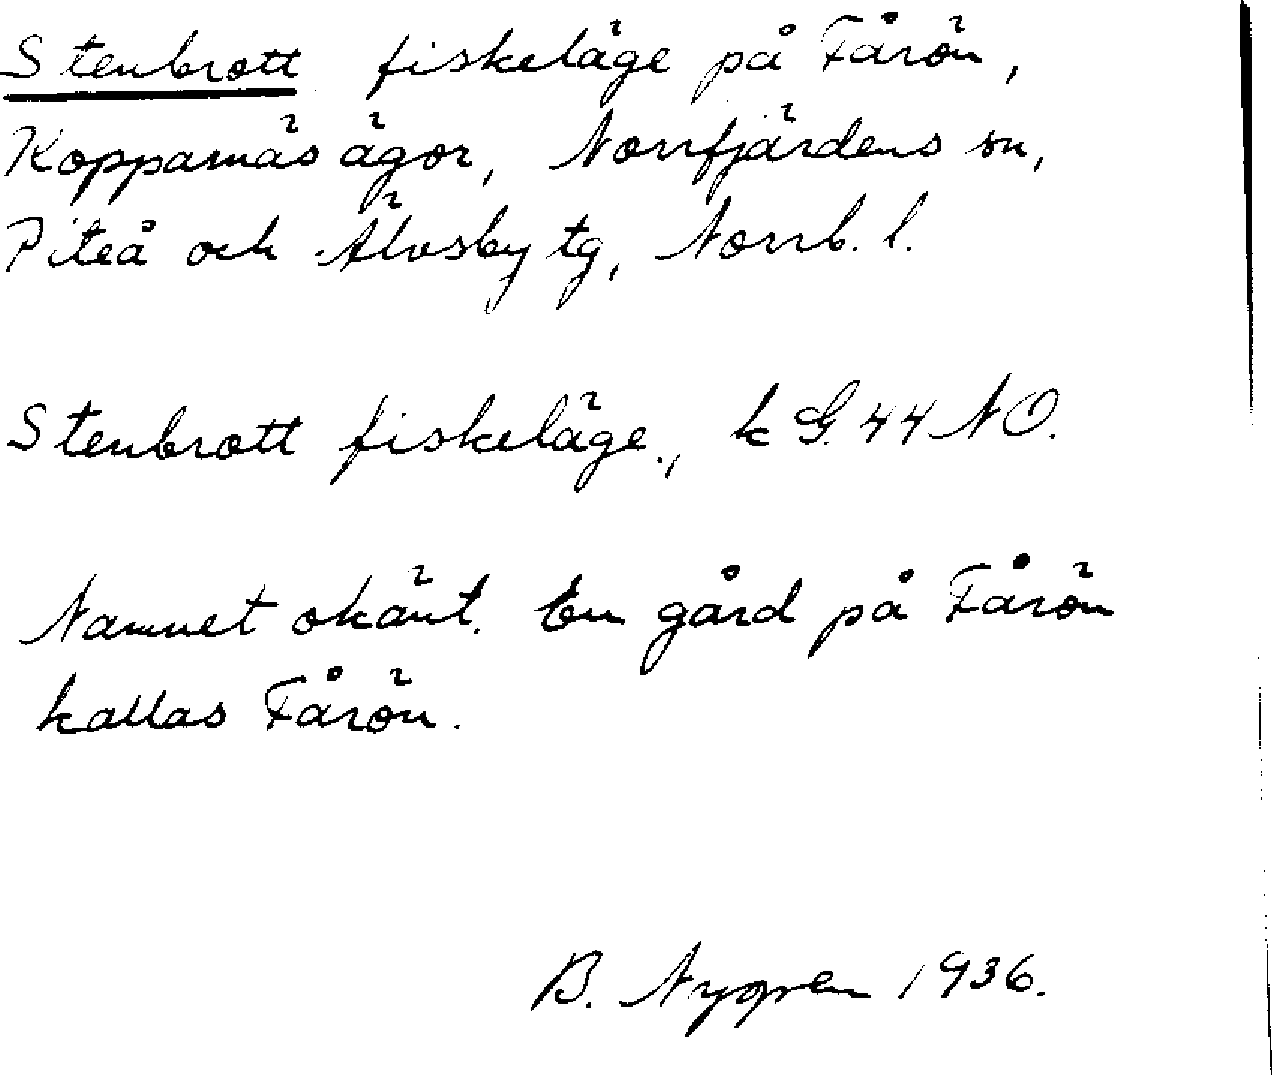 Stenbrott fiskeläge på Fårön,
Kopparnäs ägor, Norrfjärdens sn,
Piteå och Älvsby tg, Norrb. l.
Stenbrott fiskeläge., k G. 44 NO.
Namnet okänt. En gård på Fårön
kallas Fårön.
B. Nygren 1936.